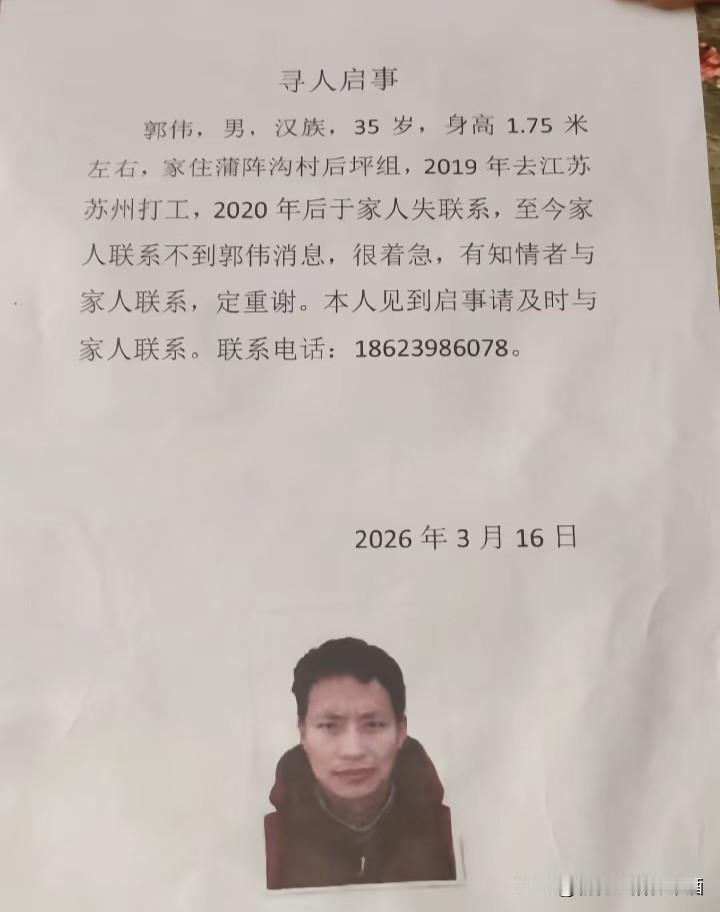 寻人启事
郭伟，男，汉族，35 岁，身高 1.75 米
左右，家住蒲阵沟村后坪组，2019 年去江苏
苏州打工，2020 年后于家人失联系，至今家
人联系不到郭伟消息，很着急，有知情者与
家人联系，定重谢。本人见到启事请及时与
家人联系。联系电话：18623986078。
2026 年 3 月 16 日